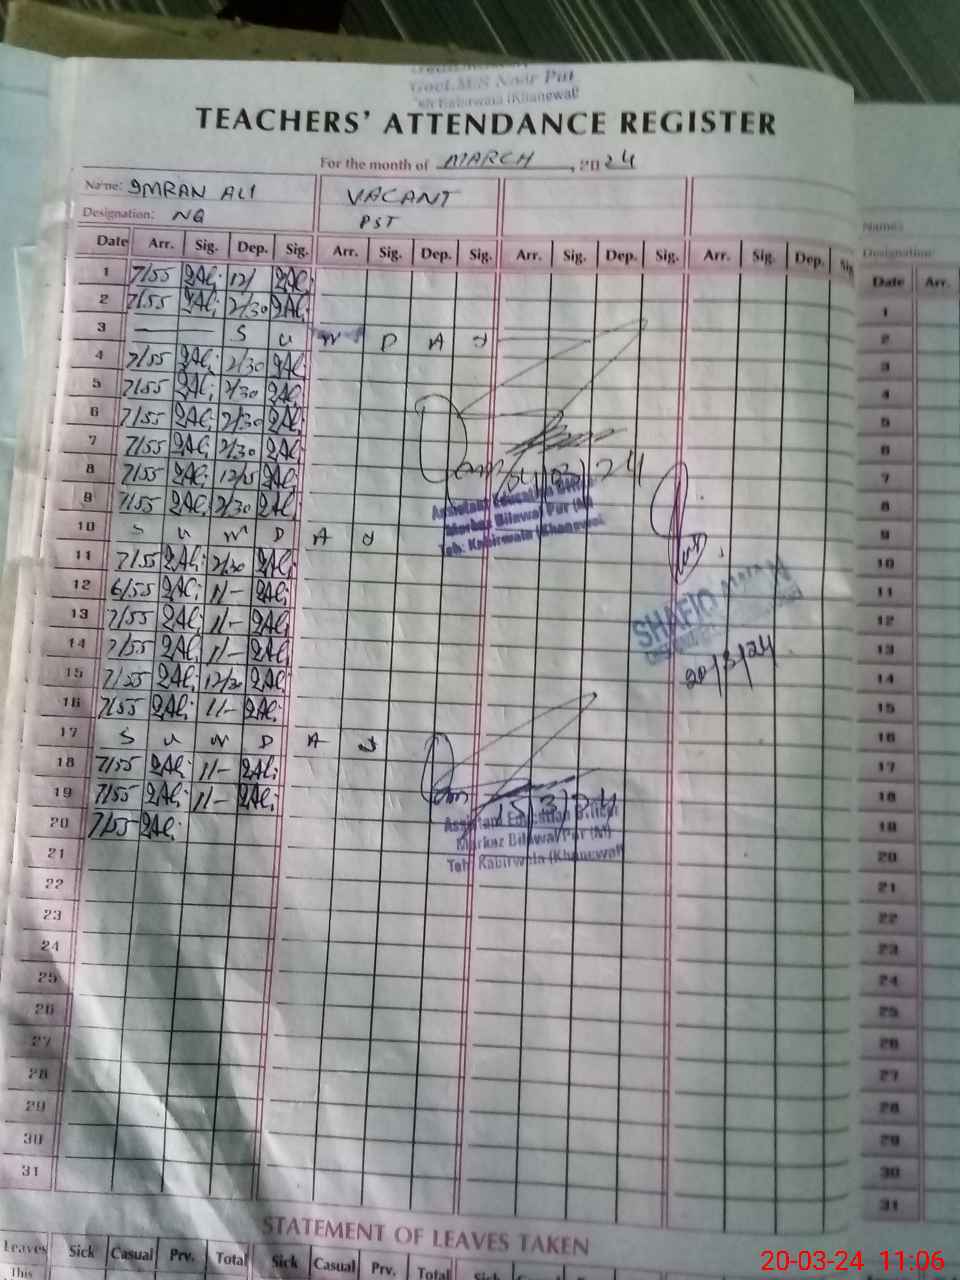 Govt.M/S Noor Pur
Teh Kabirwala (Khanewal)
TEACHERS' ATTENDANCE REGISTER
For the month of MARCH, 2024
Name: IMRAN ALI VACANT
Designation: NQ PST
Date Arr. Sig. Dep. Sig. Arr. Sig. Dep. Sig. Arr. Sig. Dep. Sig. Arr. Sig. Dep. Sig
1 7/55 12/
2 7/55 2/30
3 S U N D A Y
4 7/55 2/30
5 7/55 2/30
6 7/55 2/30
7 7/55 2/30
8 7/55 12/5
9 7/55 2/30
10 S U N D A Y
11 7/55 2/30
12 6/55 11-
13 7/55 11-
14 7/55 11-
15 7/55 12/30
16 7/55 11-
17 S U N D A Y
18 7/55 11-
19 7/55 11-
20 7/55
21
22
23
24
25
26
27
28
29
30
31
04/03/24
Assistant Education Officer
Markaz Bilawal Pur (M)
Teh. Kabirwala (Khanewal
SHAFIQ
20/3/24
15/3/24
Assistant Education Officer
Markaz Bilawal Pur (M)
Teh. Kabirwala (Khanewal)
STATEMENT OF LEAVES TAKEN
Leaves Sick Casual Prv. Total Sick Casual Prv. Total Sick
This
Name:
Designation:
Date Arr.
1
2
3
4
5
6
7
8
9
10
11
12
13
14
15
16
17
18
19
20
21
22
23
24
25
26
27
28
29
30
31
20-03-24 11:06